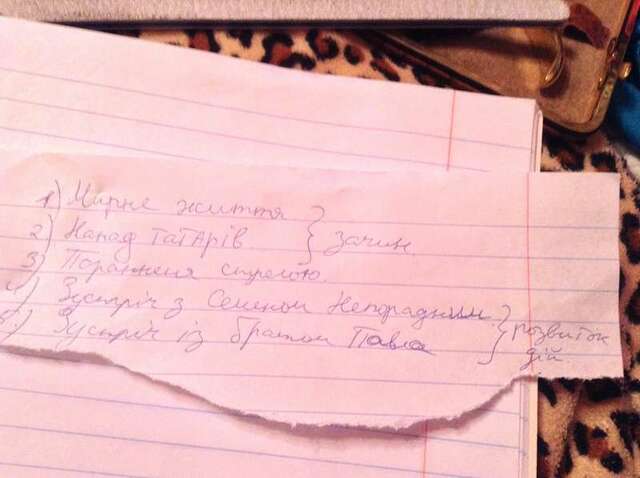 1) Мирне життя
2) Напад татарів } зачин.
3) Поранження стрелою.
4) Зустріч з Семеном Непорадним
5) Зустріч із братом Павла } розвиток
дій